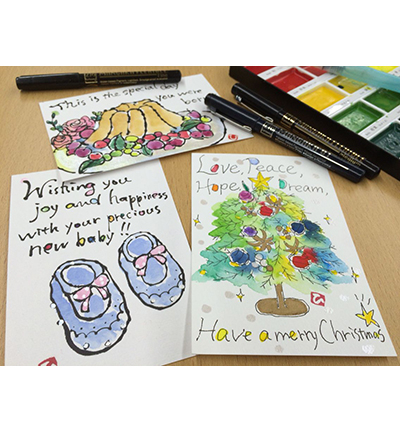 This is the special day
you were
Wishing you
joy and happiness
with your precious
new baby!!
Love, Peace,
Hope Dream,
Have a merry Christmas